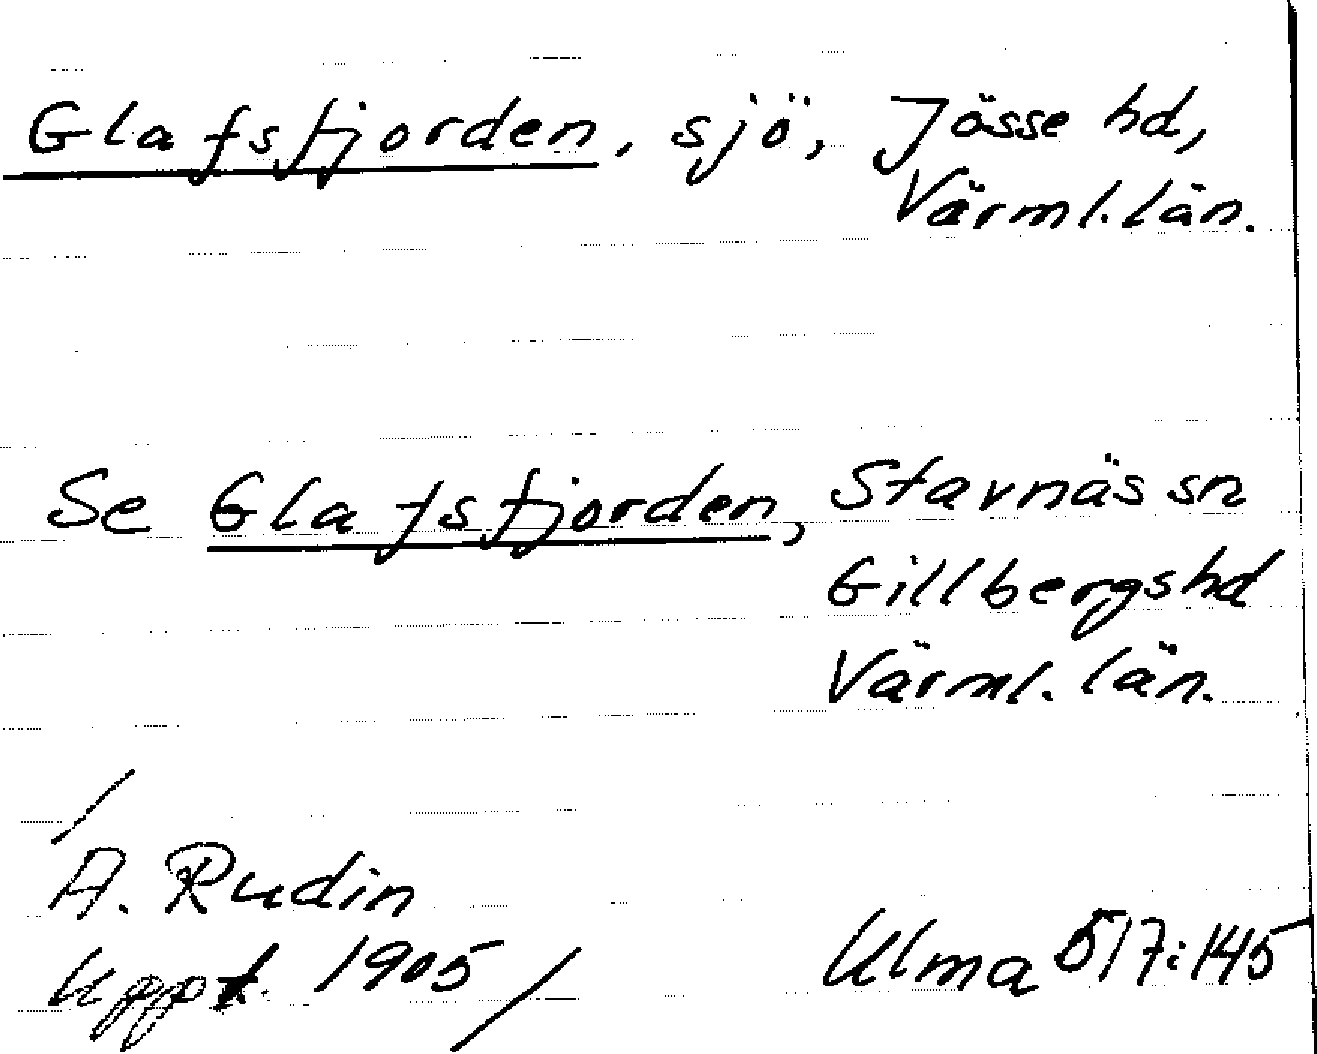 Glafsfjorden, sjö, Jösse hd,
Värml. län.
Se Glafsfjorden, Stavnäs sn
Gillbergs hd
Värml. län.
/
A. Rudin
Uppt. 1905 /
Ulma 517:145